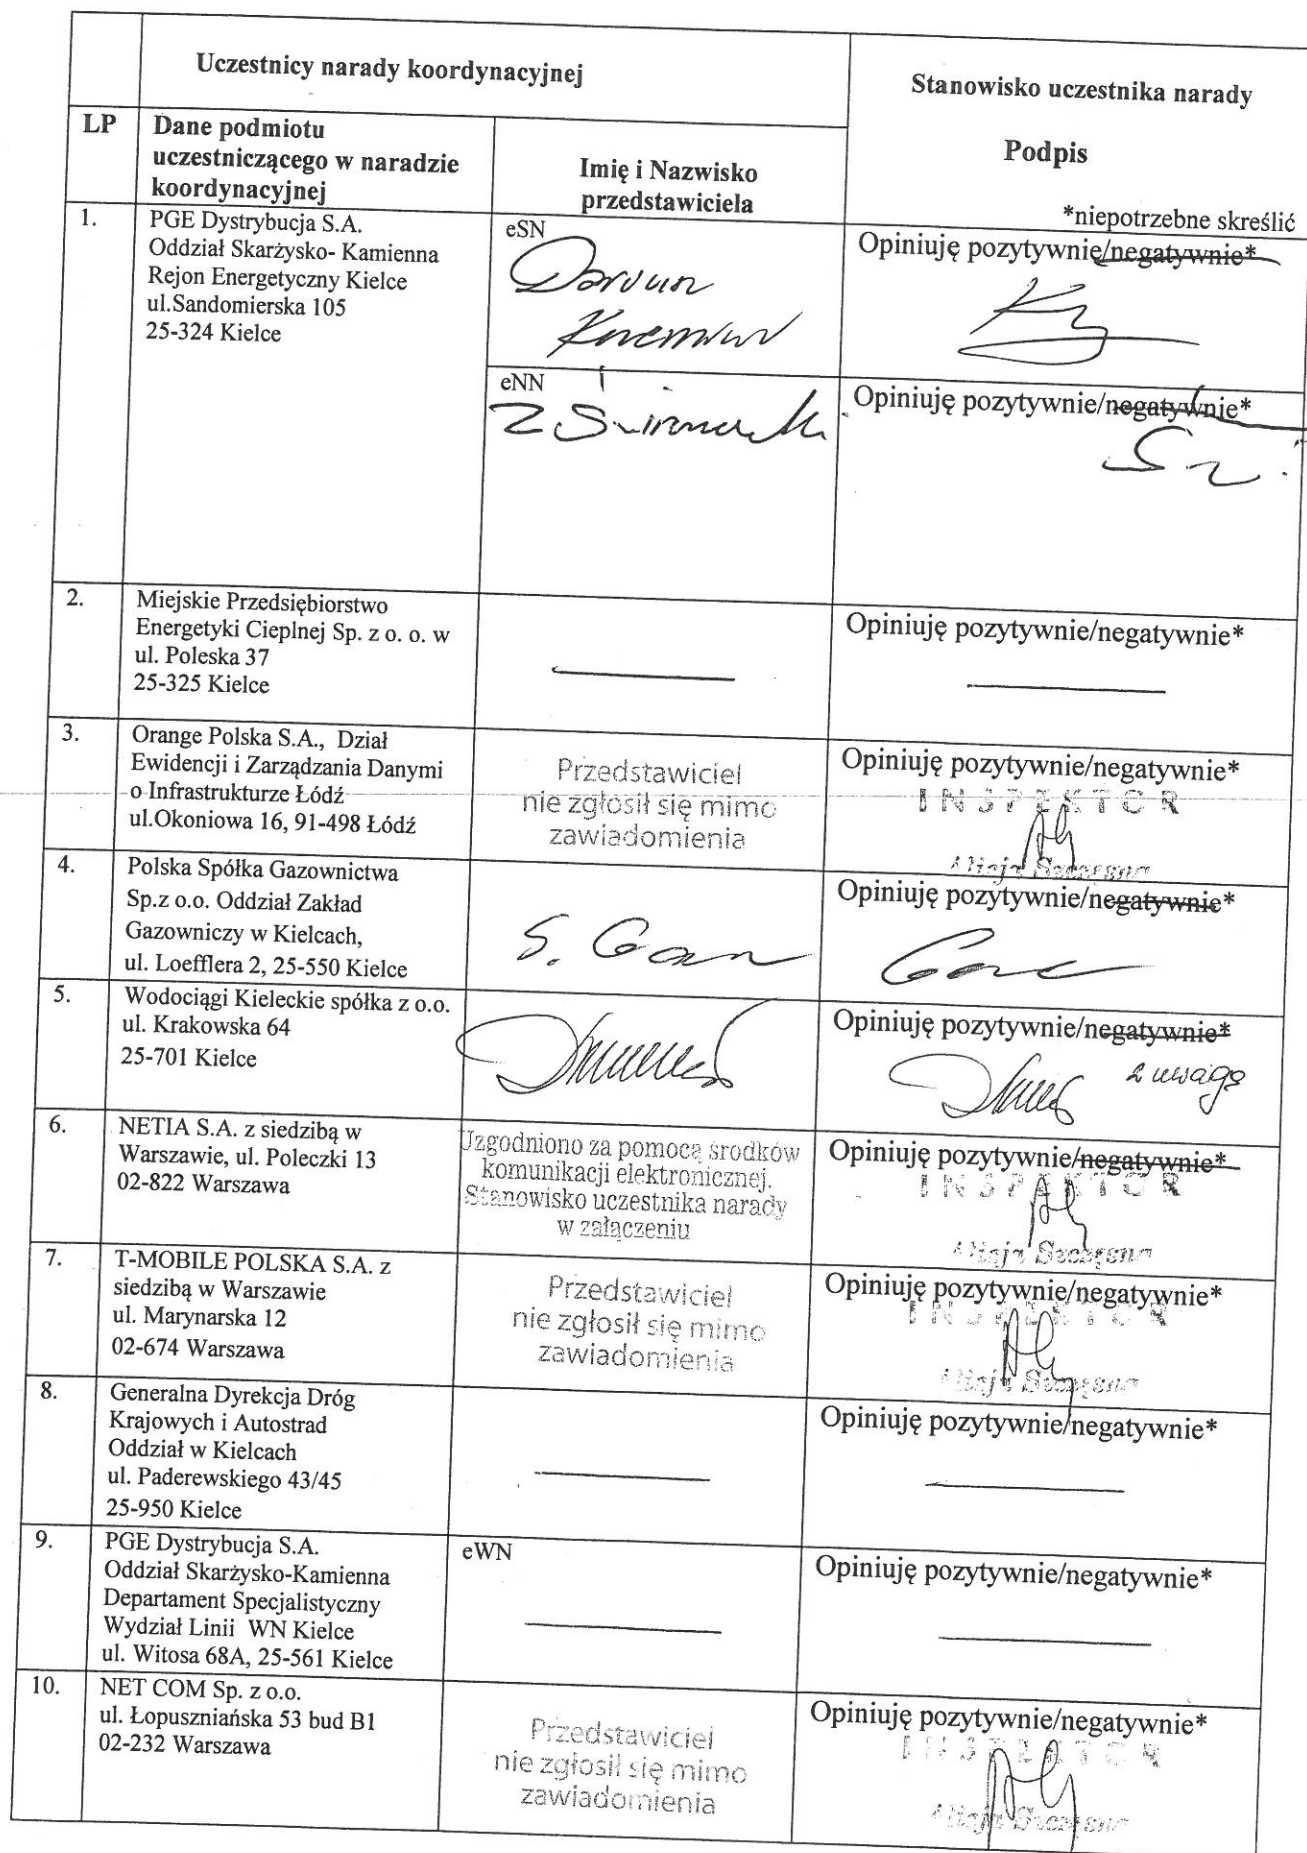 Uczestnicy narady koordynacyjnej
Stanowisko uczestnika narady
Podpis
*niepotrzebne skreślić
LP
Dane podmiotu
uczestniczącego w naradzie
koordynacyjnej
Imię i Nazwisko
przedstawiciela
1.
PGE Dystrybucja S.A.
Oddział Skarżysko- Kamienna
Rejon Energetyczny Kielce
ul.Sandomierska 105
25-324 Kielce
eSN
Opiniuję pozytywnie/negatywnie*
eNN
Opiniuję pozytywnie/negatywnie*
2.
Miejskie Przedsiębiorstwo
Energetyki Cieplnej Sp. z o. o. w
ul. Poleska 37
25-325 Kielce
Opiniuję pozytywnie/negatywnie*
3.
Orange Polska S.A., Dział
Ewidencji i Zarządzania Danymi
o Infrastrukturze Łódź
ul.Okoniowa 16, 91-498 Łódź
Przedstawiciel
nie zgłosił się mimo
zawiadomienia
Opiniuję pozytywnie/negatywnie*
INSPEKTOR
Alicja Szczęsna
4.
Polska Spółka Gazownictwa
Sp.z o.o. Oddział Zakład
Gazowniczy w Kielcach,
ul. Loefflera 2, 25-550 Kielce
Opiniuję pozytywnie/negatywnie*
5.
Wodociągi Kieleckie spółka z o.o.
ul. Krakowska 64
25-701 Kielce
Opiniuję pozytywnie/negatywnie*
z uwagą
6.
NETIA S.A. z siedzibą w
Warszawie, ul. Poleczki 13
02-822 Warszawa
Uzgodniono za pomocą środków
komunikacji elektronicznej.
Stanowisko uczestnika narady
w załączeniu
Opiniuję pozytywnie/negatywnie*
INSPEKTOR
Alicja Szczęsna
7.
T-MOBILE POLSKA S.A. z
siedzibą w Warszawie
ul. Marynarska 12
02-674 Warszawa
Przedstawiciel
nie zgłosił się mimo
zawiadomienia
Opiniuję pozytywnie/negatywnie*
INSPEKTOR
Alicja Szczęsna
8.
Generalna Dyrekcja Dróg
Krajowych i Autostrad
Oddział w Kielcach
ul. Paderewskiego 43/45
25-950 Kielce
Opiniuję pozytywnie/negatywnie*
9.
PGE Dystrybucja S.A.
Oddział Skarżysko-Kamienna
Departament Specjalistyczny
Wydział Linii WN Kielce
ul. Witosa 68A, 25-561 Kielce
eWN
Opiniuję pozytywnie/negatywnie*
10.
NET COM Sp. z o.o.
ul. Łopuszniańska 53 bud B1
02-232 Warszawa
Przedstawiciel
nie zgłosił się mimo
zawiadomienia
Opiniuję pozytywnie/negatywnie*
INSPEKTOR
Alicja Szczęsna